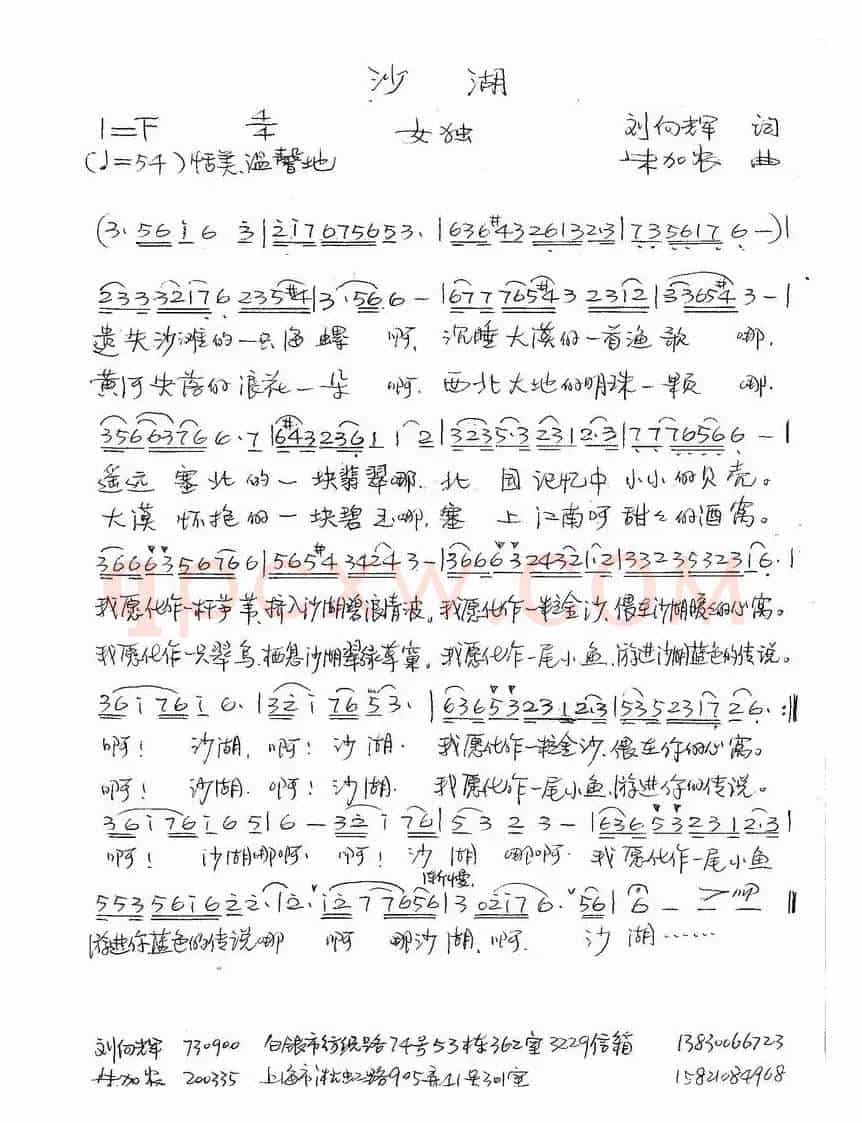 沙 湖
1=F 4/4 女独 刘向辉 词
(♩=54) 恬美、温馨地 朱加农 曲
(3. 561 6 3|2176075653.|636#4326132.3|735617 6 -)|
23332176235#4|3.566 -|677765#432312|3365#43-|
遗失沙滩的一只海螺 啊, 沉睡大漠的一首渔歌 哪,
黄河失落的浪花一朵 啊, 西北大地的明珠一颗 哪,
3566376 6.7|6#43236112|3235.32312.3|77765666-|
遥远 塞北的一块翡翠哪, 北 国记忆中小小的贝壳。
大漠 怀抱的一块碧玉哪, 塞 上江南呵甜々的酒窝。
366663356766|565#434243-|3666632432112|33235323216.|
我愿化作一杆芦苇,插入沙湖碧浪清波,我愿化作一粒金沙,偎在沙湖暖々的心窝。
我愿化作一只翠鸟,栖息沙湖翠绿草窠,我愿化作一尾小鱼,游进沙湖蓝色的传说。
361761 6.|3217653.|636532312.3|535231726.:‖
啊! 沙湖, 啊! 沙湖. 我愿化作一粒金沙,偎在你的心窝。
啊! 沙湖. 啊! 沙湖. 我愿化作一尾小鱼,游进你的传说。
36176165|6-32176|5323-|636532312.3|
啊! 沙湖哪啊, 啊! 沙湖 哪啊. 我愿化作一尾小鱼
渐慢
553561622.|2.1277656|302176.56|6 - - -‖
游进你蓝色的传说哪 啊 哪沙湖, 啊. 沙湖……
qpcxw.com
刘向辉 730900 白银市纺织路74号53栋362室3229信箱 13830066723
朱加农 200335 上海市淞虹路905弄41号301室 15821084968